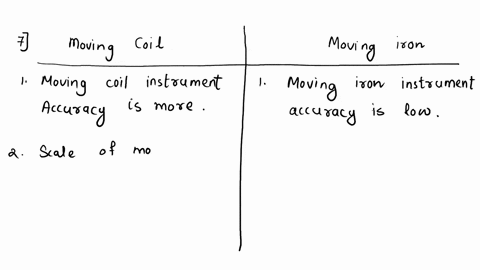 7] Moving Coil
Moving iron
1. Moving coil instrument
Accuracy is more.
1. Moving iron instrument
accuracy is low.
2. Scale of mo